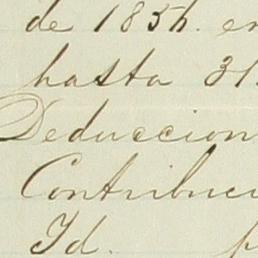 de 1856. en
hasta 31
Deduccion
Contribuci
Id.